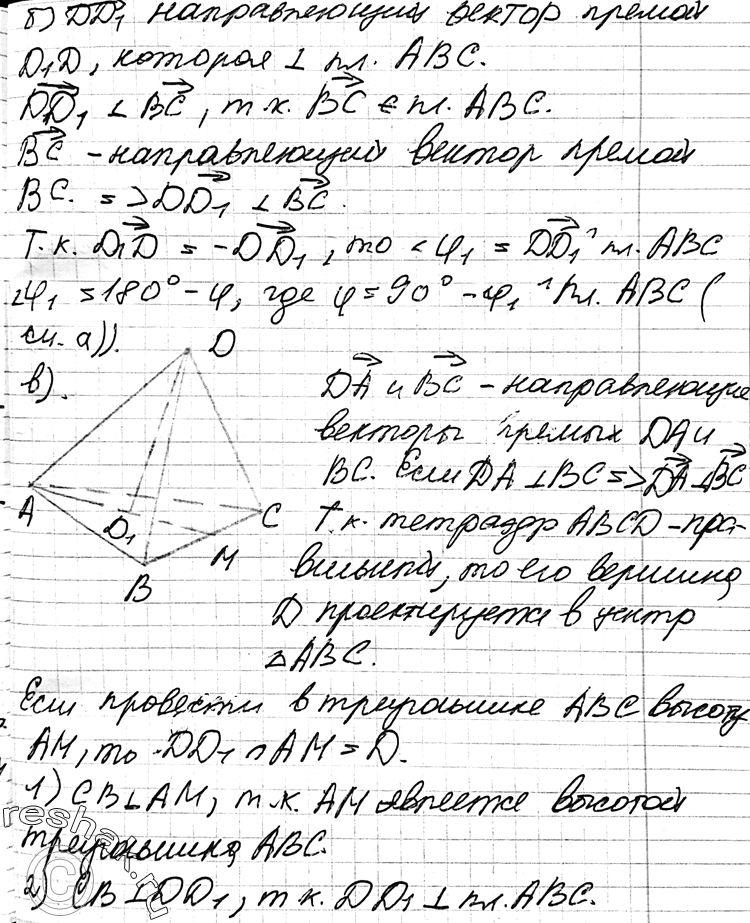 б) DD₁ направляющий вектор прямой
D₁D, которая ⊥ пл. ABC.
DD₁ ⊥ BC, т.к. BC ∈ пл. ABC.
BC - направляющий вектор прямой
BC. => DD₁ ⊥ BC.
Т.к. D₁D = -DD₁, то <φ₁ = DD₁ ^ пл. ABC
∠φ₁ = 180° - φ, где φ = 90° - φ₁ ^ пл. ABC (
см. а)).
D
в).
DA и BC - направляющие
векторы прямых DA и
BC. Если DA ⊥ BC => DA ⊥ BC
A D₁ C
M
B
Т.к. тетраэдр ABCD - пра-
вильный, то его вершина
D проектируется в центр
△ABC.
Если провести в треугольнике ABC высоту
AM, то DD₁ ∩ AM = D.
1) CB ⊥ AM, т.к. AM является высотой
треугольника ABC.
2) CB ⊥ DD₁, т.к. DD₁ ⊥ пл. ABC.
reshak.ru
©